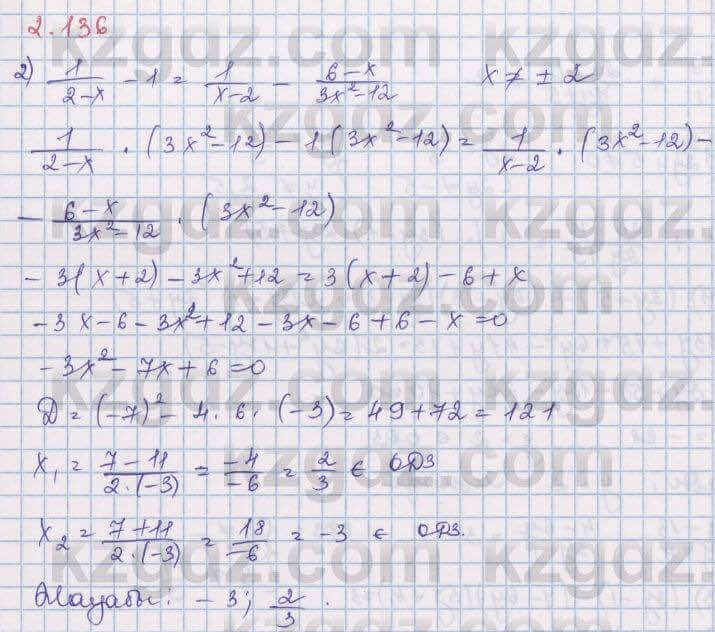 2.136
2) 1/(2-x) - 1 = 1/(x-2) - (6-x)/(3x²-12)    x ≠ ± 2
1/(2-x) · (3x²-12) - 1(3x²-12) = 1/(x-2) · (3x²-12) -
- (6-x)/(3x²-12) · (3x²-12)
- 3(x+2) - 3x²+12 = 3(x+2) - 6 + x
-3x-6-3x²+12-3x-6+6-x=0
-3x²-7x+6=0
D = (-7)² - 4·6·(-3) = 49+72 = 121
x₁ = (7-11)/(2·(-3)) = -4/-6 = 2/3 ∈ ОДЗ
x₂ = (7+11)/(2·(-3)) = 18/-6 = -3 ∈ ОДЗ.
Жауабы: -3; 2/3.
kzgdz.com